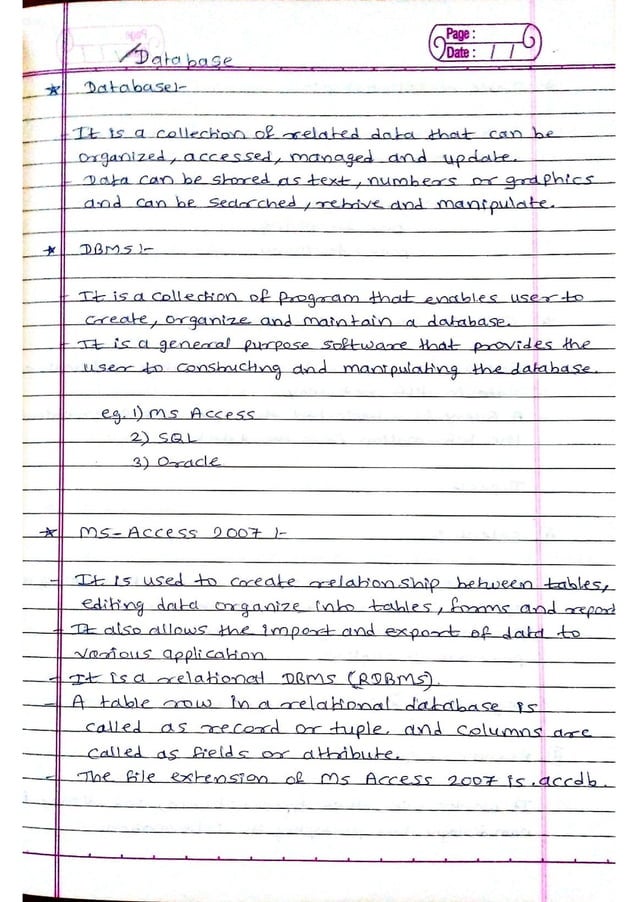 Page :
Date : / /
Database
* Database:-
- It is a collection of related data that can be
organized, accessed, managed and update.
- Data can be stored as text, numbers or graphics
and can be searched, retrive and manipulate.
* DBMS :-
- It is a collection of program that enables user to
create, organize and maintain a database.
- It is a general purpose software that provides the
user to constructing and manipulating the database.
eg. 1) MS Access
2) SQL
3) Oracle
* MS-Access 2007 :-
- It is used to create relationship between tables,
editing data organize into tables, forms and report
- It also allows the import and export of data to
various application
- It is a relational DBMS (RDBMS).
- A table row in a relational database is
called as record or tuple. and columns are
called as fields or attribute.
- The file extension of MS Access 2007 is .accdb.